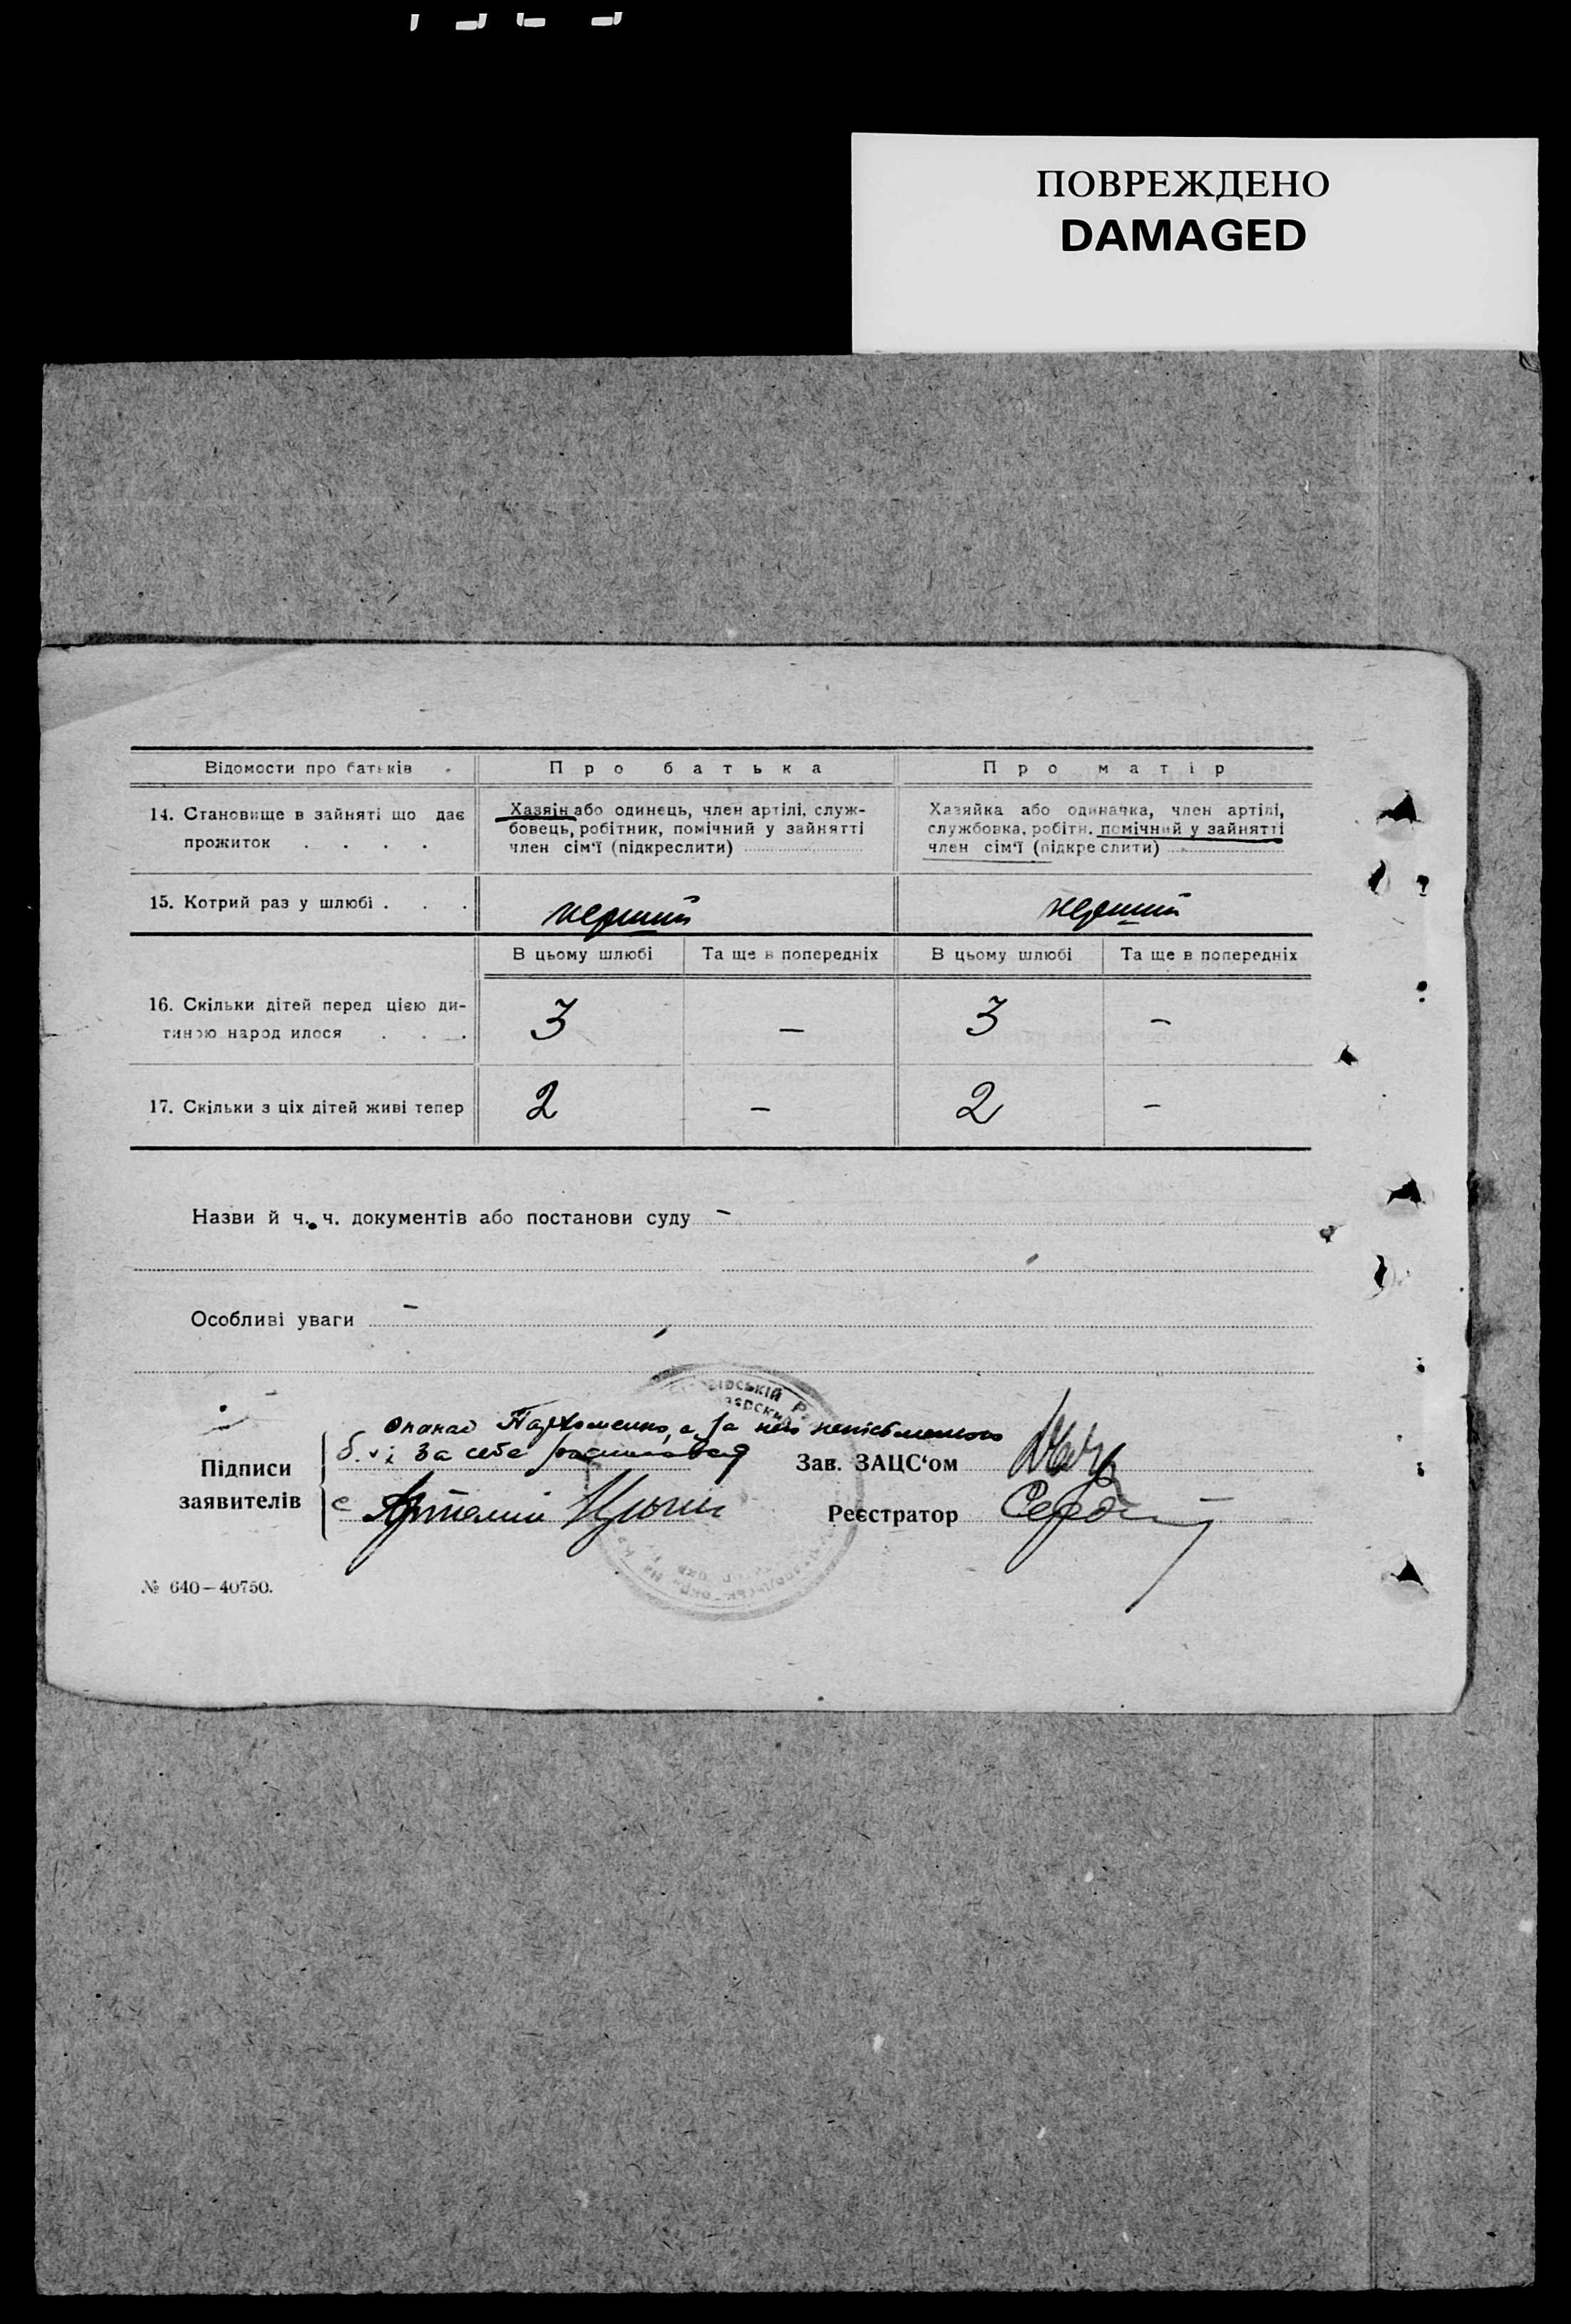 ПОВРЕЖДЕНО
DAMAGED
Відомости про батьків
Про батька
Про матір
14. Становище в зайняті що дає
прожиток . . . .
Хазяїн або одинець, член артілі, служ-
бовець, робітник, помічний у зайнятті
член сім'ї (підкреслити)
Хазяйка або одиначка, член артілі,
службовка, робітн. помічний у зайнятті
член сім'ї (підкреслити)
15. Котрий раз у шлюбі . . .
перший
перший
В цьому шлюбі
Та ще в попередніх
В цьому шлюбі
Та ще в попередніх
16. Скільки дітей перед цією ди-
тиною народилося . . .
3
—
3
—
17. Скільки з ціх дітей живі тепер
2
—
2
—
Назви й ч. ч. документів або постанови суду —
Особливі уваги —
Опанас Пархоменко, а за його неписьменного
і за себе расписався
Підписи
заявителів
Артемій
Зав. ЗАЦС'ом
Реєстратор
№ 640—40750.